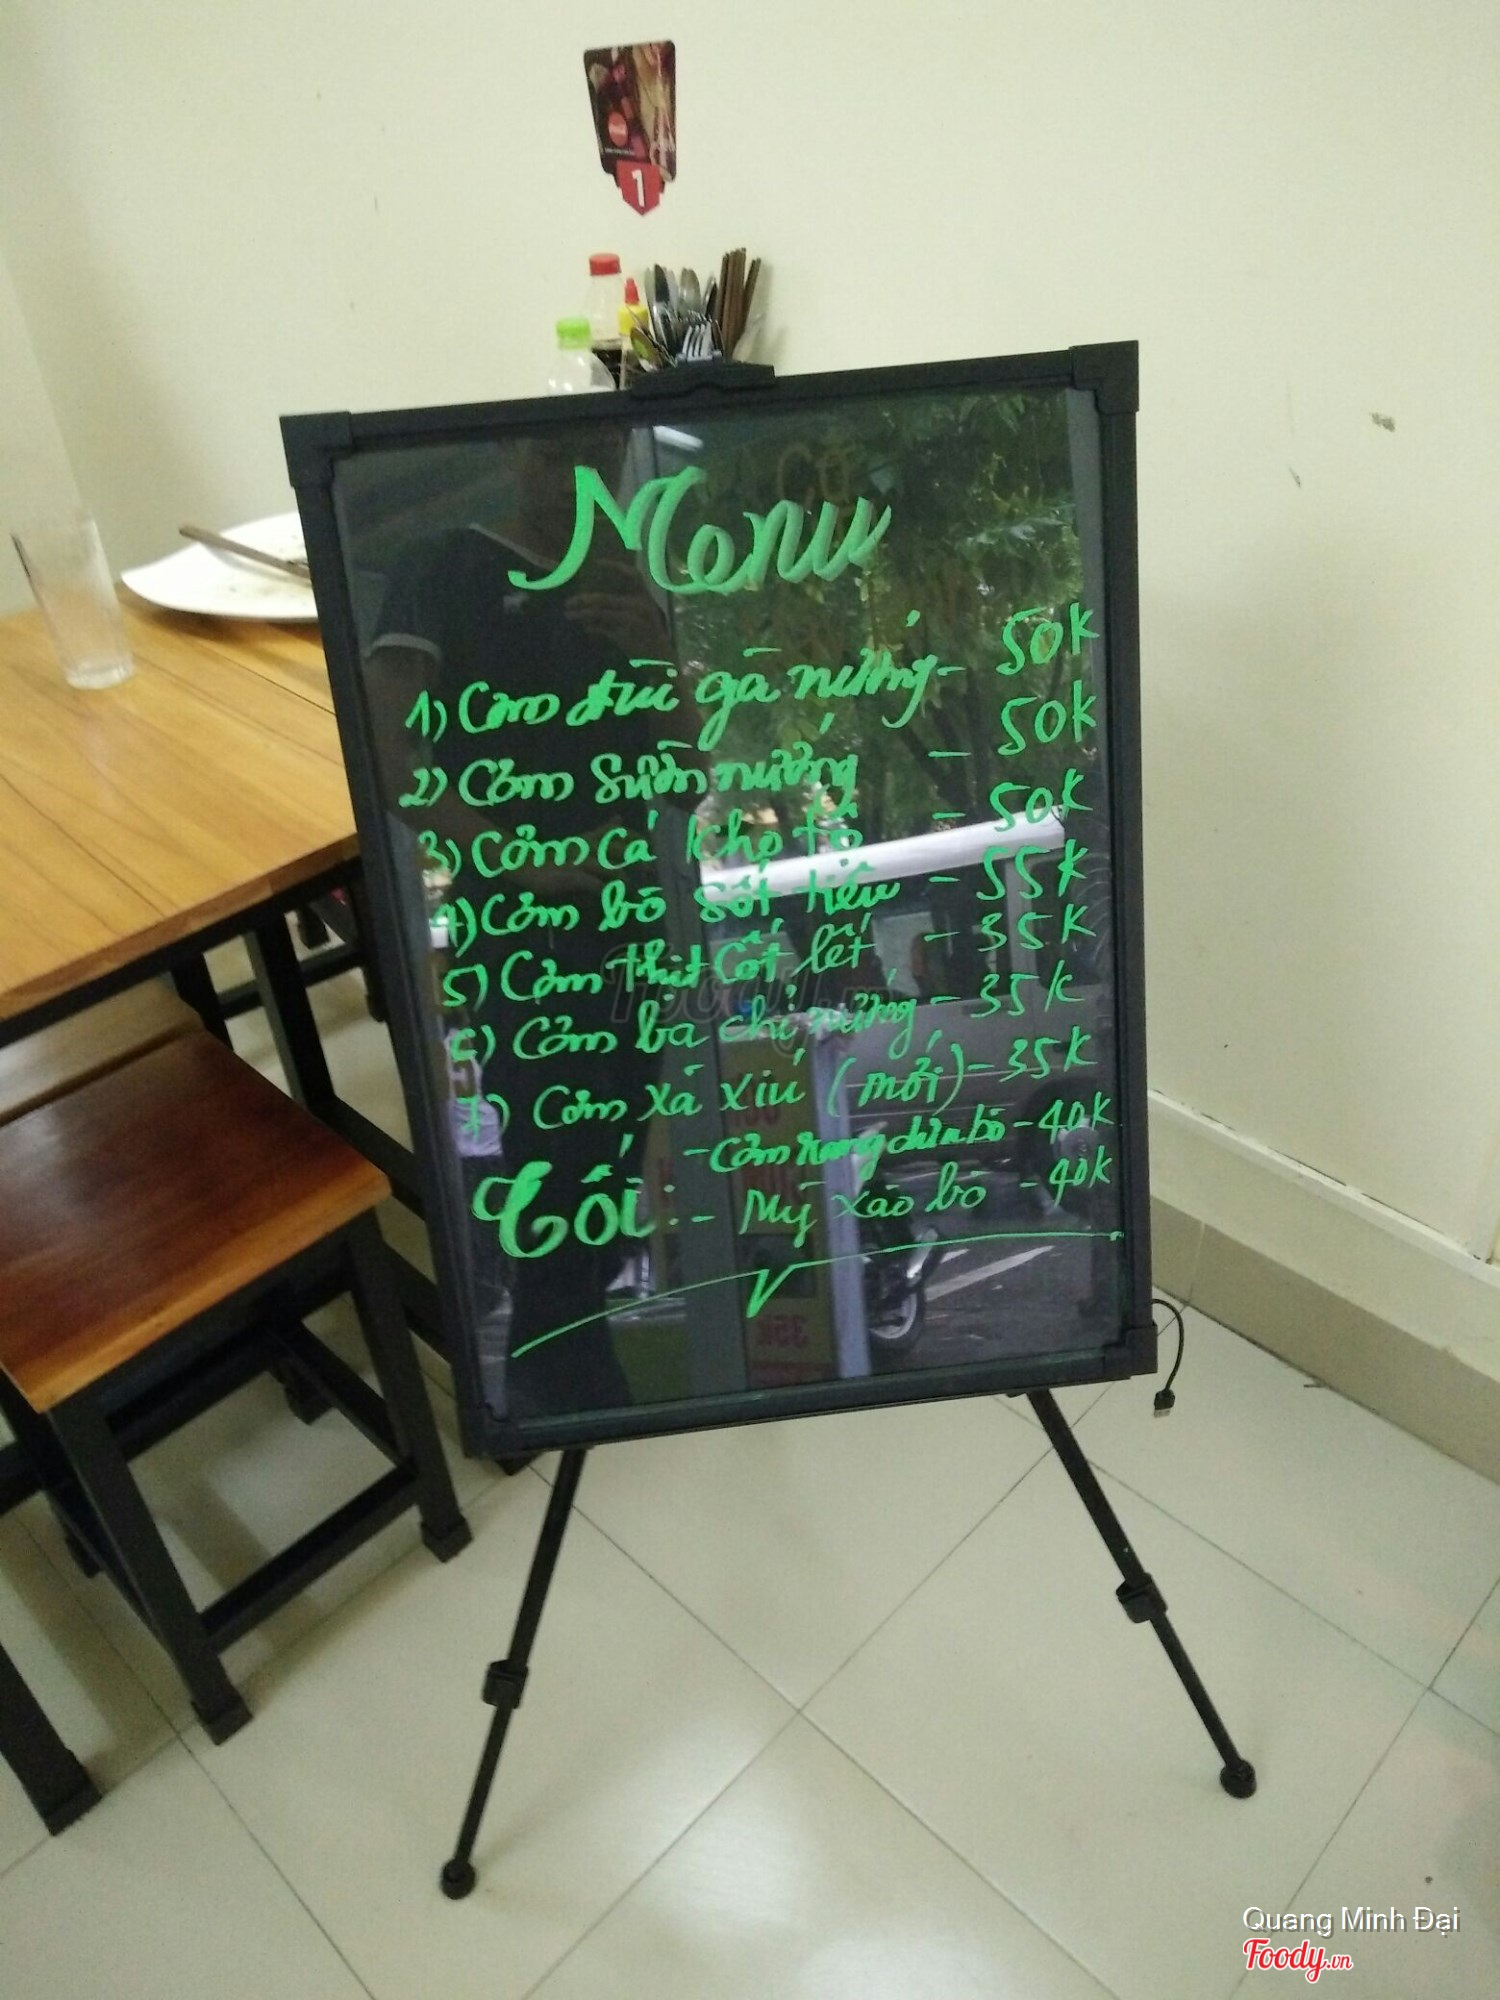 1
Menu
1) Cơm đùi gà nướng - 50k
2) Cơm sườn nướng - 50k
3) Cơm cá kho tộ - 50k
4) Cơm bò sốt tiêu - 55k
5) Cơm thịt cốt lết - 35k
6) Cơm ba chỉ nướng - 35k
7) Cơm xá xíu (mới) - 35k
- Cơm rang dưa bò - 40k
Tối: - Mỳ xào bò - 40k
Foody.vn
35K
Quang Minh Đại
Foody.vn